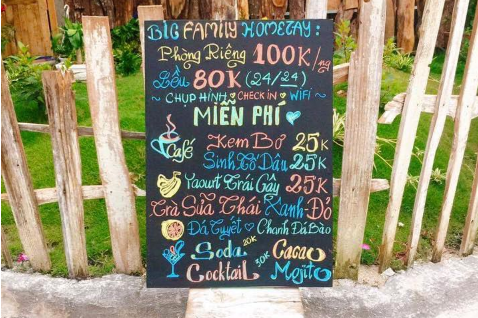 BIG FAMILY HOMETAY:
Phòng Riêng 100K/ng
Lều 80K (24/24)
~ CHỤP HÌNH CHECK IN WIFI ~
MIỄN PHÍ
Café
Kem Bơ 25K
Sinh Tố Dâu 25K
Yaourt Trái Cây 25K
Trà Sữa Thái Xanh-Đỏ
Đá Tuyết Chanh Đá Bào
Soda 20K Cacao
Cocktail 30K Mojito